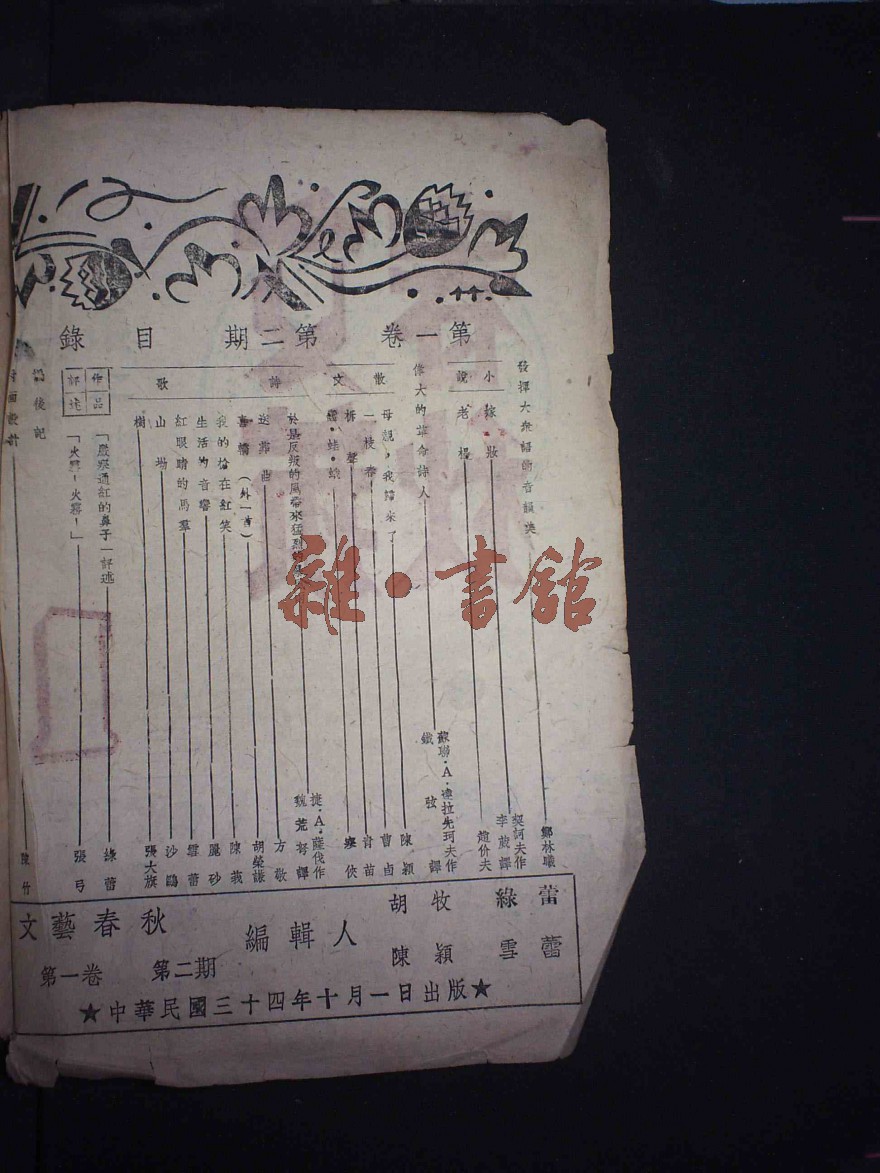 第一卷 第二期 目錄
發揮大衆語的音韻美 鄭林曦
小說
嫁・妝 契訶夫作 李葳譯
老楊 趙价夫
偉大的革命詩人 蘇聯・A・達拉先珂夫作 鐵弦譯
散文
母親,我歸來了 陳穎
一枝春 曹卣
柝聲 青苗
・蛙・蛾 寒俠
詩歌
於是反叛的風帶來猛烈的 捷・A・薩伐作 魏荒弩譯
送葬曲 方敬
喜轎(外一首) 胡榮謙
我的槍在紅笑 陳莪
生活的音響 麗砂
紅眼睛的馬羣 雪蕾
山塲 沙鷗
樹 張大旗
作品評述
「嚴寒通紅的鼻子」評述 綠蕾
「火霧!火霧!」 張弓
後記
封面設計 陳竹
文藝春秋
第一卷 第二期
編輯人
綠蕾 雪蕾
胡牧 陳穎
★中華民國三十四年十月一日出版★
雜・書館